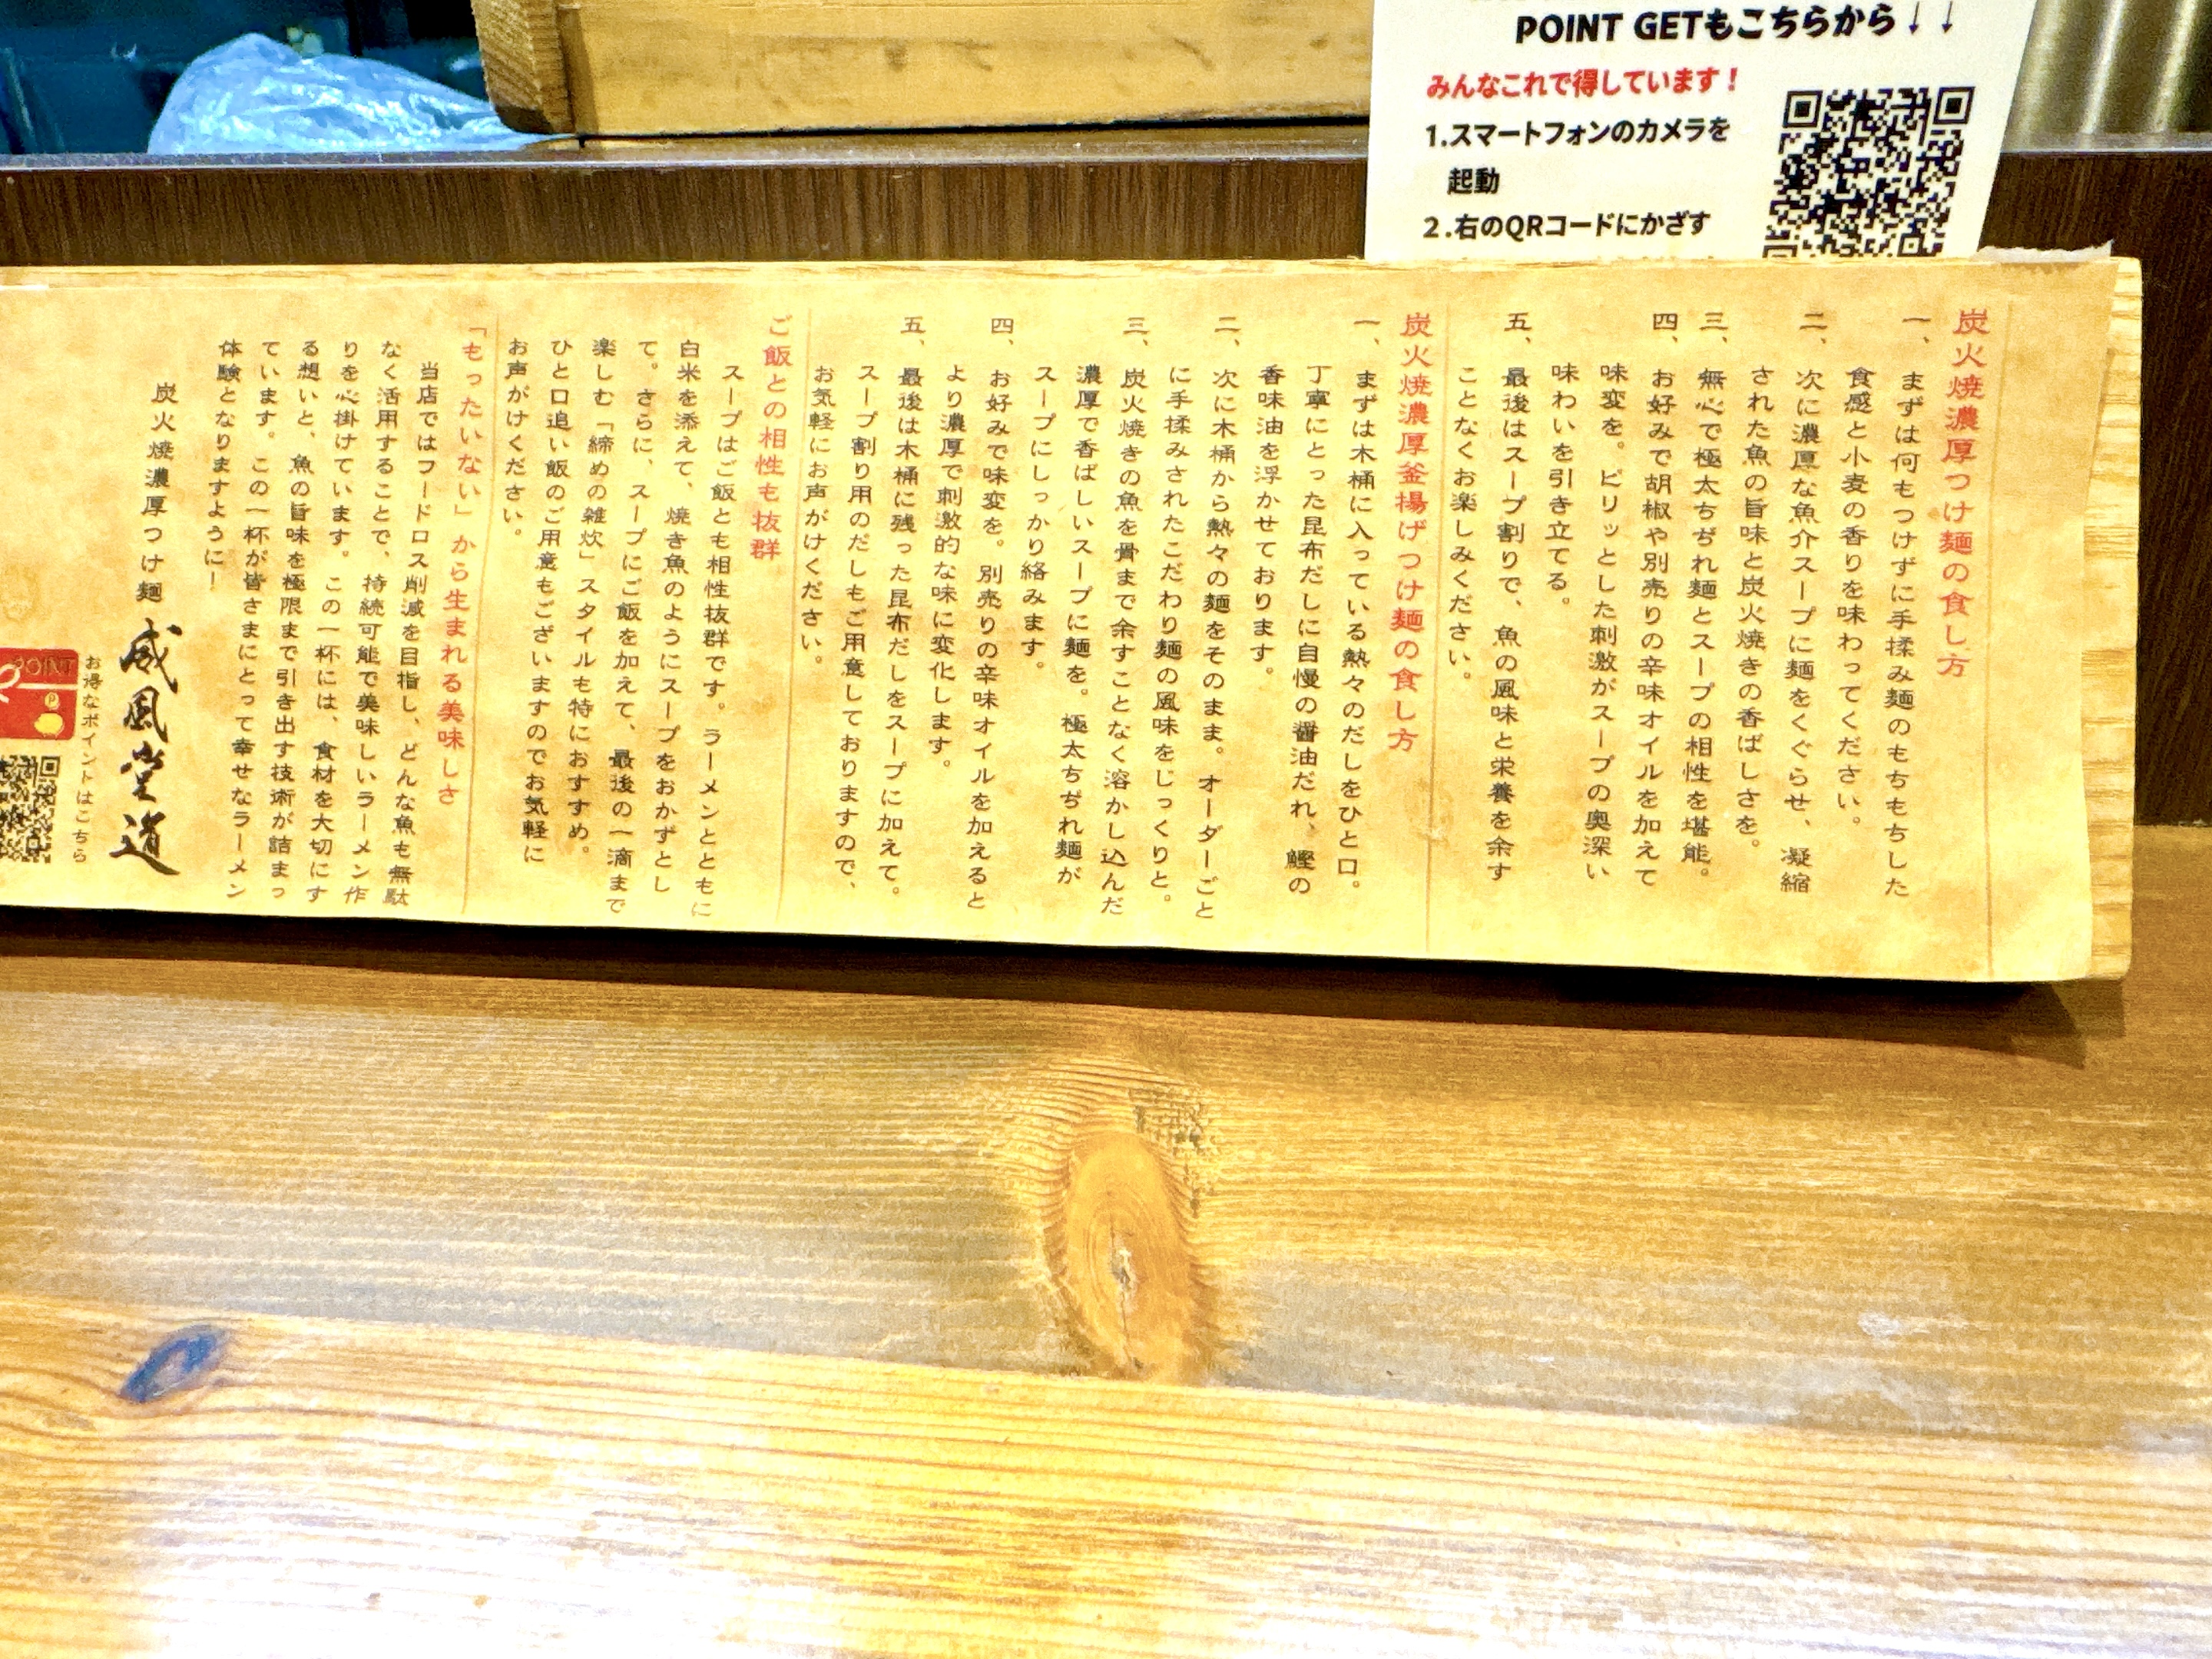 POINT GETもこちらから↓↓
みんなこれで得しています！
1.スマートフォンのカメラを
起動
2.右のQRコードにかざす
炭火焼濃厚つけ麺の食し方
一、まずは何もつけずに手揉み麺のもちもちした
食感と小麦の香りを味わってください。
二、次に濃厚な魚介スープに麺をくぐらせ、凝縮
された魚の旨味と炭火焼きの香ばしさを。
三、無心で極太ちぢれ麺とスープの相性を堪能。
四、お好みで胡椒や別売りの辛味オイルを加えて
味変を。ピリッとした刺激がスープの奥深い
味わいを引き立てる。
五、最後はスープ割りで、魚の風味と栄養を余す
ことなくお楽しみください。
炭火焼濃厚釜揚げつけ麺の食し方
一、まずは木桶に入っている熱々のだしをひと口。
丁寧にとった昆布だしに自慢の醤油だれ、鰹の
香味油を浮かせております。
二、次に木桶から熱々の麺をそのまま。オーダーごと
に手揉みされたこだわり麺の風味をじっくりと。
三、炭火焼きの魚を骨まで余すことなく溶かし込んだ
濃厚で香ばしいスープに麺を。極太ちぢれ麺が
スープにしっかり絡みます。
四、お好みで味変を。別売りの辛味オイルを加えると
より濃厚で刺激的な味に変化します。
五、最後は木桶に残った昆布だしをスープに加えて。
スープ割り用のだしもご用意しておりますので、
お気軽にお声がけください。
ご飯との相性も抜群
スープはご飯とも相性抜群です。ラーメンとともに
白米を添えて、焼き魚のようにスープをおかずとし
て。さらに、スープにご飯を加えて、最後の一滴まで
楽しむ「締めの雑炊」スタイルも特におすすめ。
ひと口追い飯のご用意もございますのでお気軽に
お声がけください。
「もったいない」から生まれる美味しさ
当店ではフードロス削減を目指し、どんな魚も無駄
なく活用することで、持続可能で美味しいラーメン作
りを心掛けています。この一杯には、食材を大切にす
る想いと、魚の旨味を極限まで引き出す技術が詰まっ
ています。この一杯が皆さまにとって幸せなラーメン
体験となりますように！
炭火焼濃厚つけ麺 威風堂道
お得なポイントはこちら
POINT